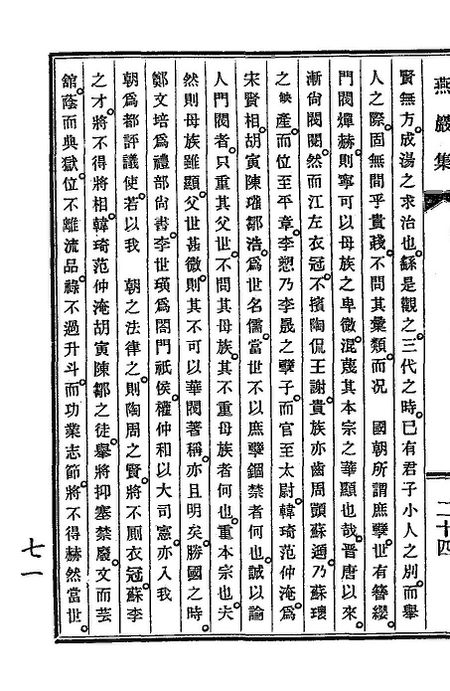 燕巖集
二十四
賢無方。成湯之求治也。繇是觀之。三代之時。已有君子小人之別。而舉
人之際。固無間乎貴賤。不問其彙類。而况 國朝所謂庶孼。世有簪纓。
門閥燀赫。則寧可以母族之卑微。混蔑其本宗之華顯也哉。晋唐以來。
漸尙閥閱。然而江左衣冠。不擯陶侃。王謝貴族。亦齒周顗。蘇頲。乃蘇瓌
之 產。而位至平章。李愬乃李晟之孼子。而官至太尉。韓琦范仲淹。爲
宋賢相。胡寅陳瓘鄒浩。爲世名儒。當世不以庶孼錮禁者何也。誠以論
人門閥者。只重其父世。不問其母族。其不重母族者何也。重本宗也。夫
然則母族雖顯。父世甚微。則其不可以華閥著稱。亦且明矣。勝國之時。
鄭文培爲禮部尙書。李世璜爲閤門祇侯。權仲和以大司憲。亦入我
朝爲都評議使。若以我 朝之法律之。則陶周之賢。將不厠衣冠。蘇李
之才。將不得將相。韓琦范仲淹胡寅陳鄒之徒。擧將抑塞禁廢。文而芸
舘。蔭而典獄。位不離流品。祿不過升斗。而功業志節。將不得赫然當世。
七一